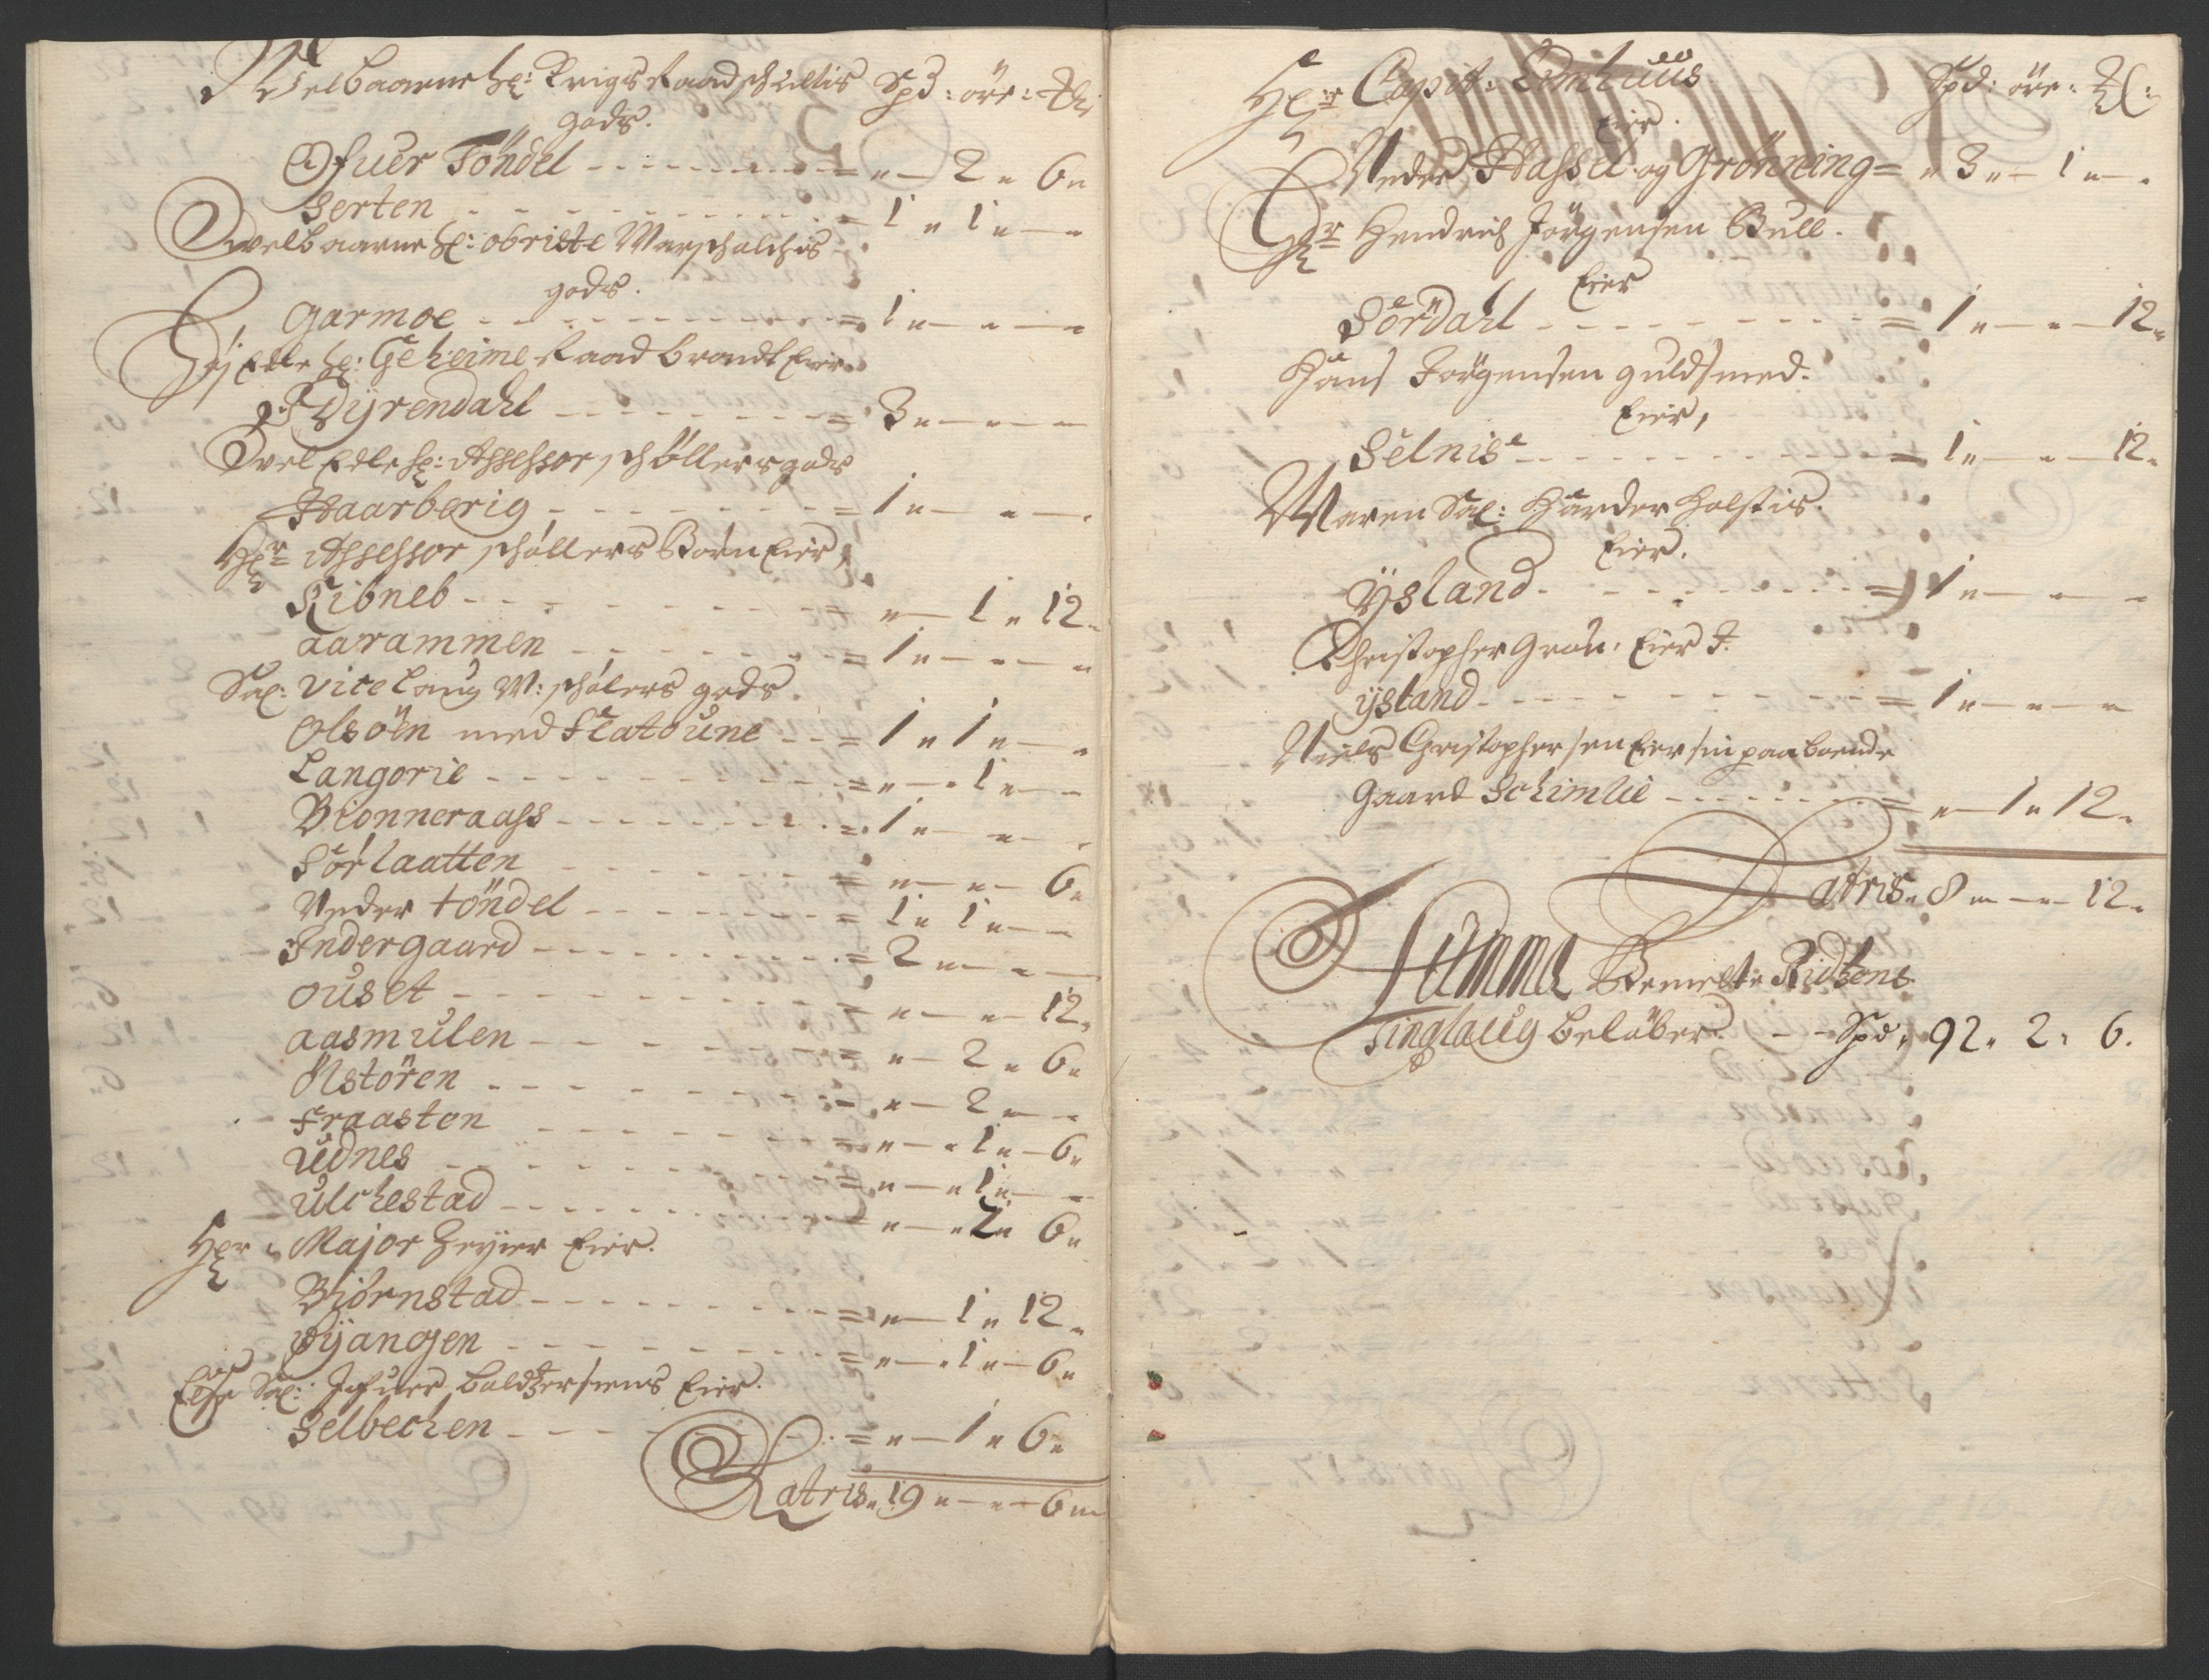 Welbaarne Hr: Krigs Raad Schultis Spd: öre: Ml:
gods.
Ofuer Töndel - - - = „ — 2 „ 6 „
Serten - - - = 1 „ 1 „ — „
Welbaarne Hr: obriste Marschalchis
gods.
Garmoe - - - = 1 „ — „ — „
Höj Edle Hr: Geheime Raad Brandt Eier
Dyrendahl - - - = 3 „ — „ — „
Wel Edle Hr: Assessor Schöllers gods
Haarberig - - - = 1 „ — „ — „
Hr: Assessor Schöllers Börn Eier,
Ribneb - - - = „ — 1 „ 12 „
aarammen - - - = 1 „ — „ — „
Sal: Vice Laug M: Schölers gods.
Olsöen med Slatoune - - = 1 „ 1 „ — „
Langorie - - - = „ — „ 1 „ — „
Bionneraass - - - = 1 „ — „ — „
Sörlaatten - - - = „ — „ — 6 „
Neder töndel - - - = 1 „ 1 „ — „
Indergaard - - - = 2 „ — „ —
ouset - - - = „ — „ — 12 „
aasmulen - - - = „ — 2 „ 6 „
Ustören - - - = „ — 2 „ — „
Fraasten - - - = „ — „ 1 „ — 6 „
Udnes - - - = „ — „ 1 „ — „
Ulchestad - - - = „ — „ 2 „ 6 „
Hr: Major Heyier Eier.
Biörnstad - - - = „ — 1 „ 12 „
Öyangen - - - = „ — „ 1 „ — 6 „
Else Sal: Jfuer Baldtzersens Eier.
Selbechen - - - = „ — 1 „ 6 „
Latris „ 19 „ — „ — 6 „
Hr: Capit: Emhuus Spd: öre: Ml:
Eier.
Neder Hassel og Grönning = „ 3 „ — 1 „ — „
Hr: Hendrich Jörgensen Bull.
Eier
Sördahl - - - = 1 „ — „ — 12 „
Hans Jörgensen guldsmed.
Eier,
Selnis - - - = 1 „ — „ — 12 „
Maren Sal: Harder Holstis.
Eier.
Ysland - - - = 1 „ — „ — „
Christopher Grön: Eier J.
ysland - - - = 1 „ — „ — „
Niels Christophersen Eier sin paaboende
Gaard Schimlie - - - = „ — 1 „ 12 „
Latris „ 8 „ — „ — 12 „
Summa Bemelte
Tinglaug Belöber - - Spd „ 92 „ 2 „ 6 .